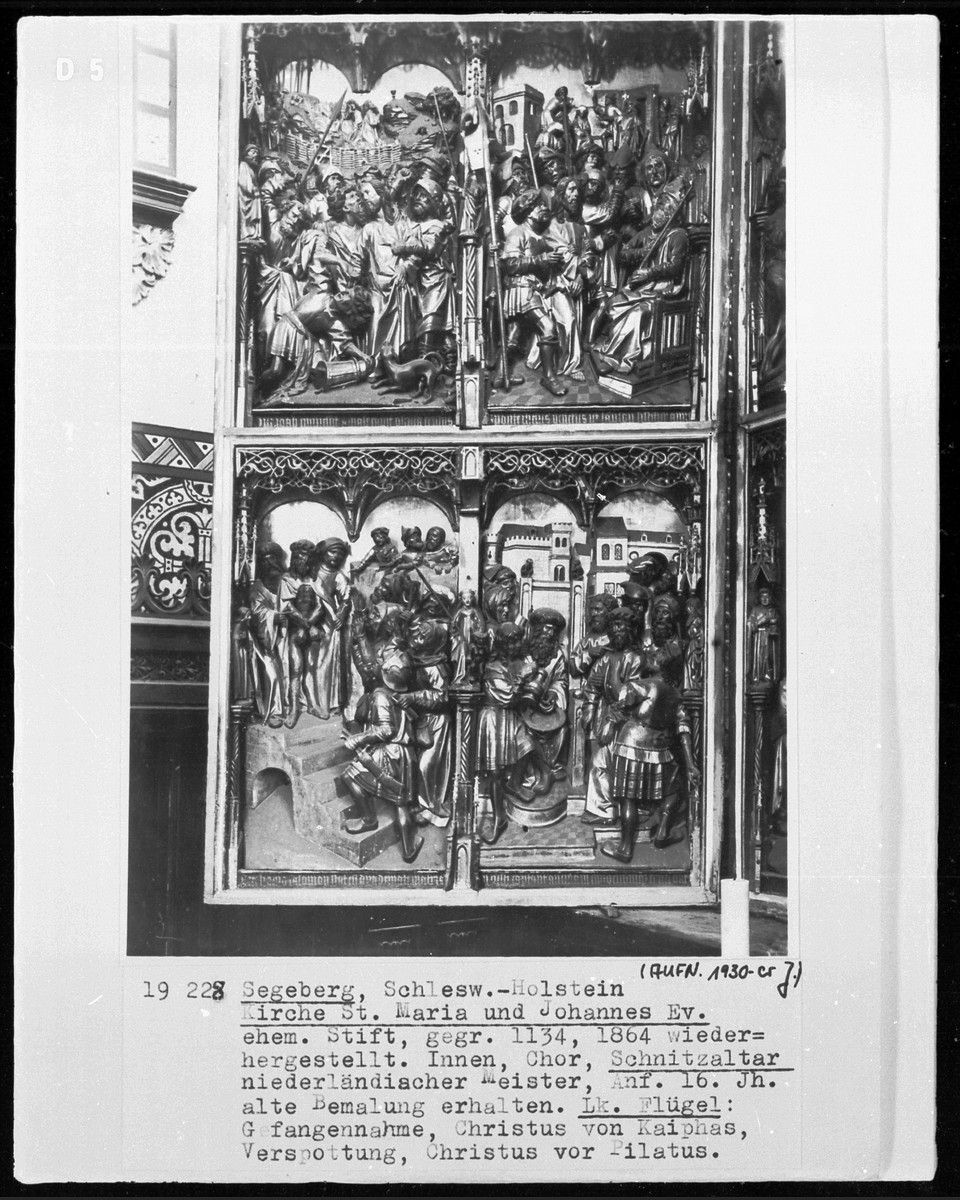 D 5
(AUFN. 1930-cr J.)
19 228 Segeberg, Schlesw.-Holstein
Kirche St. Maria und Johannes Ev.
ehem. Stift, gegr. 1134, 1864 wieder=
hergestellt. Innen, Chor, Schnitzaltar
niederländischer Meister, Anf. 16. Jh.
alte Bemalung erhalten. Lk. Flügel:
Gefangennahme, Christus von Kaiphas,
Verspottung, Christus vor Pilatus.